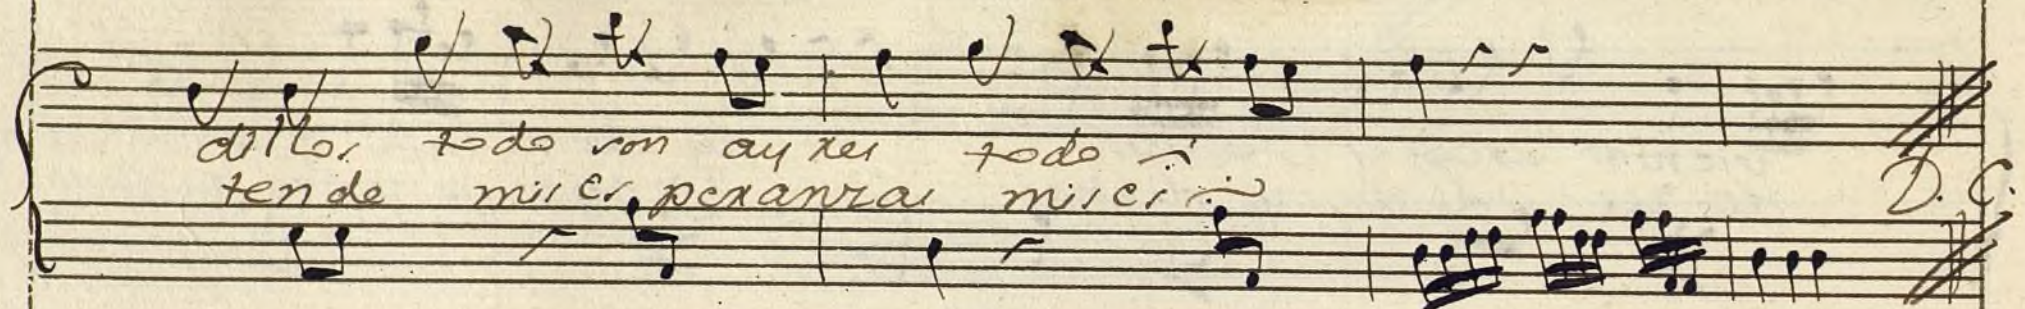 dillos todo son ayres todo
tende mis esperanzas mis es
D. C.